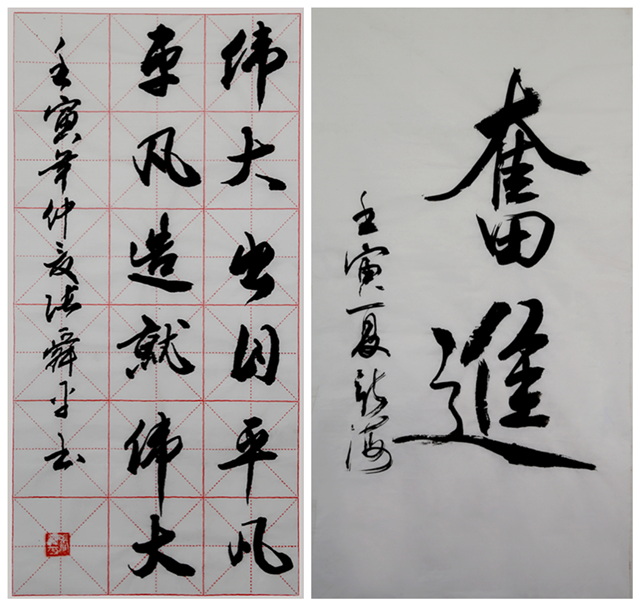 伟大出自平凡
平凡造就伟大
壬寅年仲夏舜平书
奮進
壬寅夏海